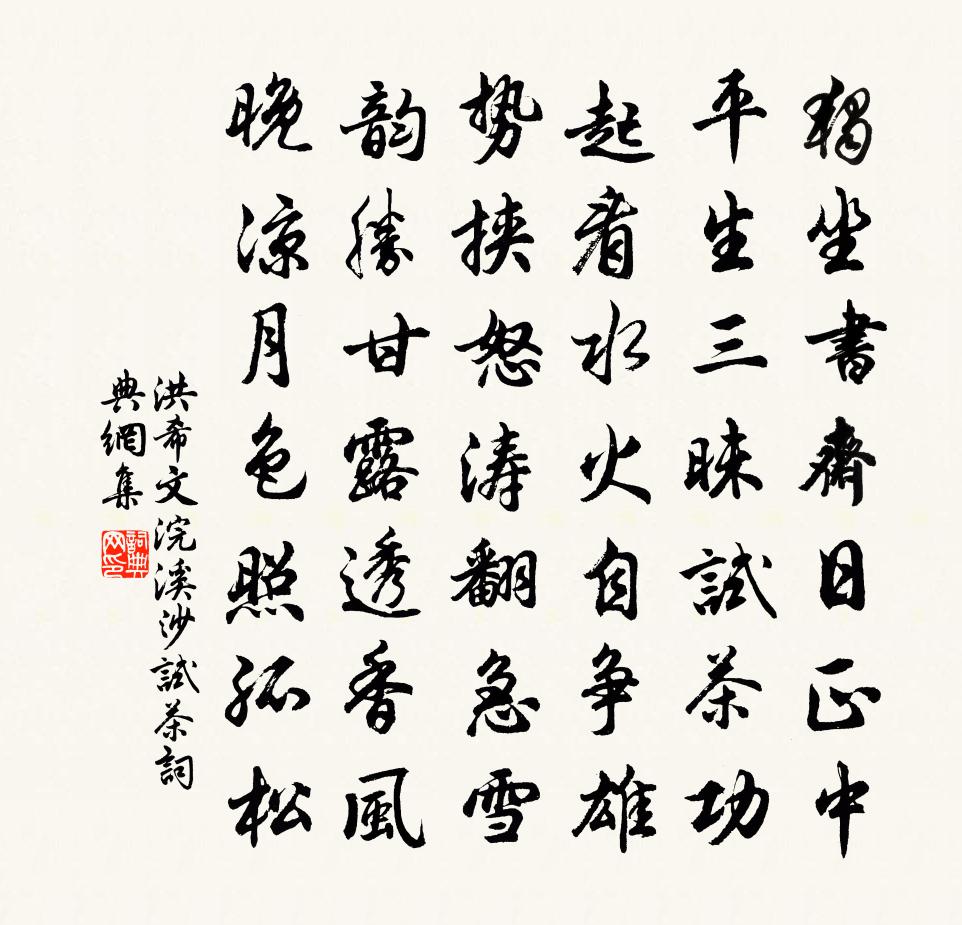 獨坐書齋日正中
平生三昧試茶功
起看水火自争雄
势挾怒涛翻急雪
韵勝甘露透香風
晚凉月色照孤松
洪希文浣溪沙試茶詞
典網集
詞典網印